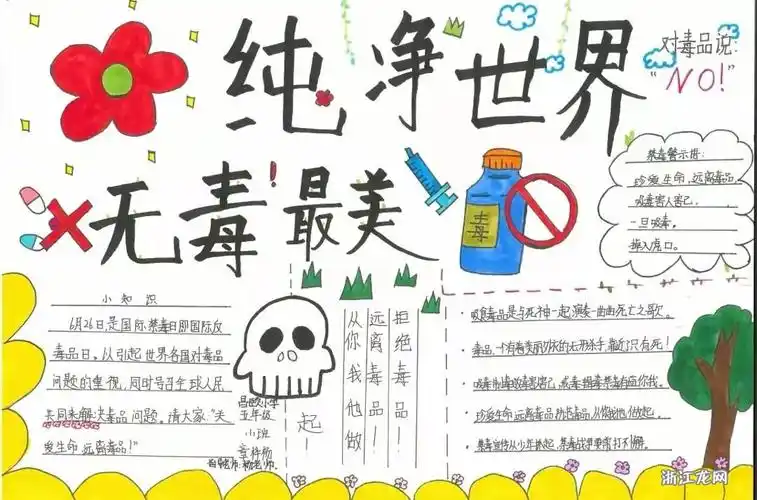 纯净世界
对毒品说：
“NO!”
无毒!最美
毒
禁毒警示语：
珍爱生命，远离毒品，
吸毒害人害己，
一旦吸毒，
掉入虎口。
小知识
6月26日是国际禁毒日即国际反
毒品日。从引起世界各国对毒品
问题的重视，同时号召全球人民
共同来解决毒品问题。请大家：“关
爱生命 远离毒品！”
昌四小学
五年级
小班
拒绝毒品—
远离毒品—
从你我他做
起—
吸食毒品是与死神一起演奏一曲曲死亡之歌。
毒品，一个有着美丽外衣的无形杀手，靠近了只有死！
珍爱生命 远离毒品 从你我他 做起。
禁毒宣传从少年抓起，禁毒战争要常打不懈。
浙江龙网